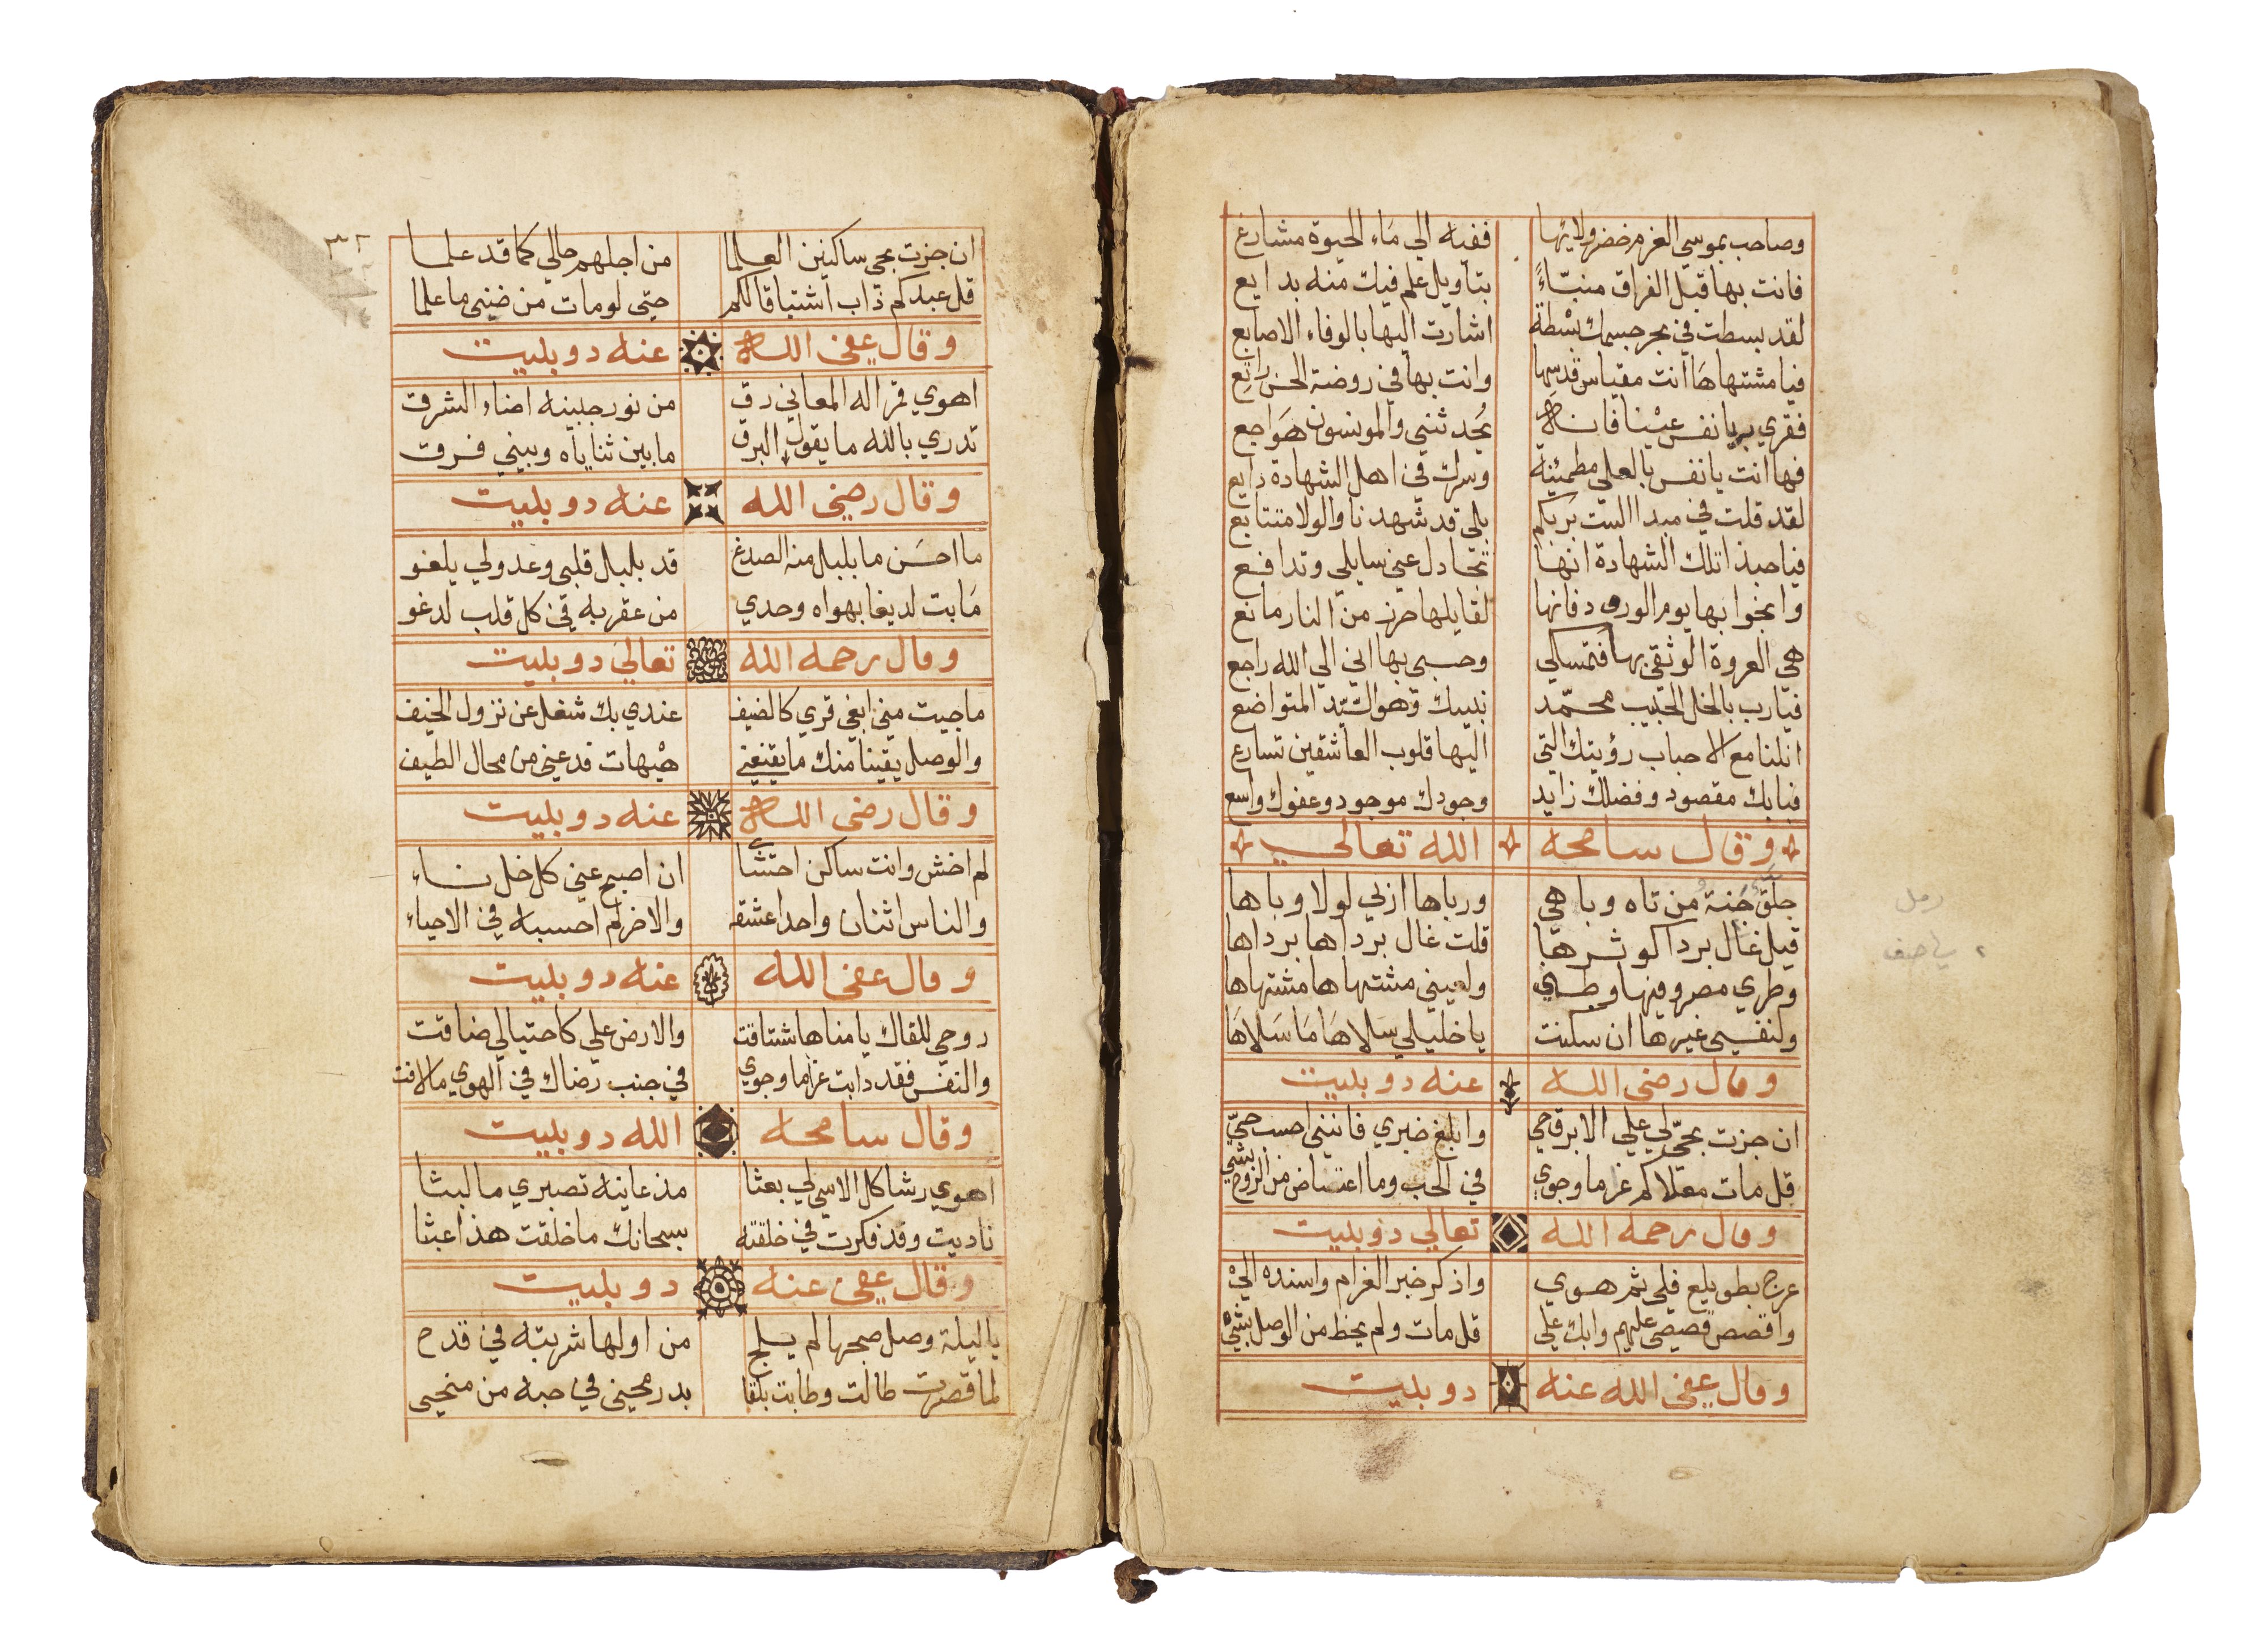 وصاحب بموسي العزم خضر ولائها ففيه الي مَاء الحيوة مشارع
فانت بها قبل الفراق منبّاءً بتآويل علم فيك منه بدايع
لقد بسطت في بحر جسمك بسْطة اشارت اليها بالوفاء الاصابع
فيا مشتهاها انت مقياس قدسها وانت بها في روضة الحسن راتع
فقري به يا نفس عينا فانه يُحدثني والمونسون هَواجع
فها انت يا نفس بالعلي مطمئنة وسرك في اهل الشهادة ذايع
لقد قلت في مبدا الست بربكم بلي قد شهدنا والولا متتابع
فيا حبذا تلك الشهادة انها تجادل عني سايلي وتدافع
وانجوا بها يوم الورود فانها لقايلها حرز من النار مانع
هي العروة الوثقي بها فتمسكي وحسبي بها اني الي الله راجع
فيارب بالخل الحبيب محمّد نبيك وهو السيّد المتواضع
انلنا مع الاحباب رؤيتك التي اليها قلوب العاشقين تسارع
فبابك مقصود وفضلك زايد وجودك موجود وعفوك واسع
وقال سامحه الله تعالي
جلق جَنة من تاه وباهي ورباها اربي لولا وباها
قيل غال بردا كوثرها قلت غال برداها برداها
وطري مصر وفيها وطني ولعيني مشتهاها مشتهاها
ولنفسي غيرها ان سكنت يا خليلي سَلاهَا مَا سَلاهَا
وقال رضي الله عنه دوبيت
ان جزت بحيّ لي علي الابرق حي وابلغ خبري فانني احسب حيّ
قل مات معناكم غراما وجوي في الحب وما اعتاض من الروح بشي
وقال رحمه الله تعالي دوبيت
عرج بطويلع فلي ثم هوي واذكر خبر الغرام واسنده اليْ
واقصص قصصي عليهم وابك علي قل مات ولم يحظ من الوصل بشيْ
وقال عفي الله عنه دوبيت
٣٢
ان جزت بحي ساكنين العلما من اجلهم حالي كما قد علما
قل عبدكم ذاب اشتياقا لكم حتي لو مات من ضني ما علما
وقال عفي الله عنه دوبيت
اهوي قمرا له المعاني رق من نور جبينه اضاء الشرق
تدري بالله ما يقول البرق ما بين ثناياه وبيني فرق
وقال رضي الله عنه دوبيت
ما احسَن ما بلبل منه الصدغ قد بلبل قلبي وعدولي يلغو
مَا بت لديغا بهواه وحدي من عقربه في كل قلب لدغو
وقال رحمه الله تعالي دوبيت
ما جيت مني ابغي قري كالضيف عندي بك شغل عن نزول الخيف
والوصل يقينا منك ما يقنعني هيْهات فدعني من محال الطيف
وقال رضي الله عنه دوبيت
لم اخش وانت ساكن احشاي ان اصبح عني كل خل ناء
والناس اثنان واحد اعشقه والاخر لم احسبه في الاحياء
وقال عفي الله عنه دوبيت
روحي للقاك يا مناها اشتاقت والارض علي كاحتيالي ضاقت
والنفس فقد دابت غراما وجوي في جنب رضاك في الهوي ما لاقت
وقال سامحه الله دوبيت
اهوي رشا كل الاسي لي بعثا مذ عاينه تصبري ما لبثا
ناديت وقد فكرت في خلقته سبحانك ما خلقت هذا عبثا
وقال عفي عنه دوبيت
يا ليلة وصل صبحها لم يلح من اولها شربته في قدح
لما قصرت طالت وطابت بلقا بدر محنتي في حبه من منحي